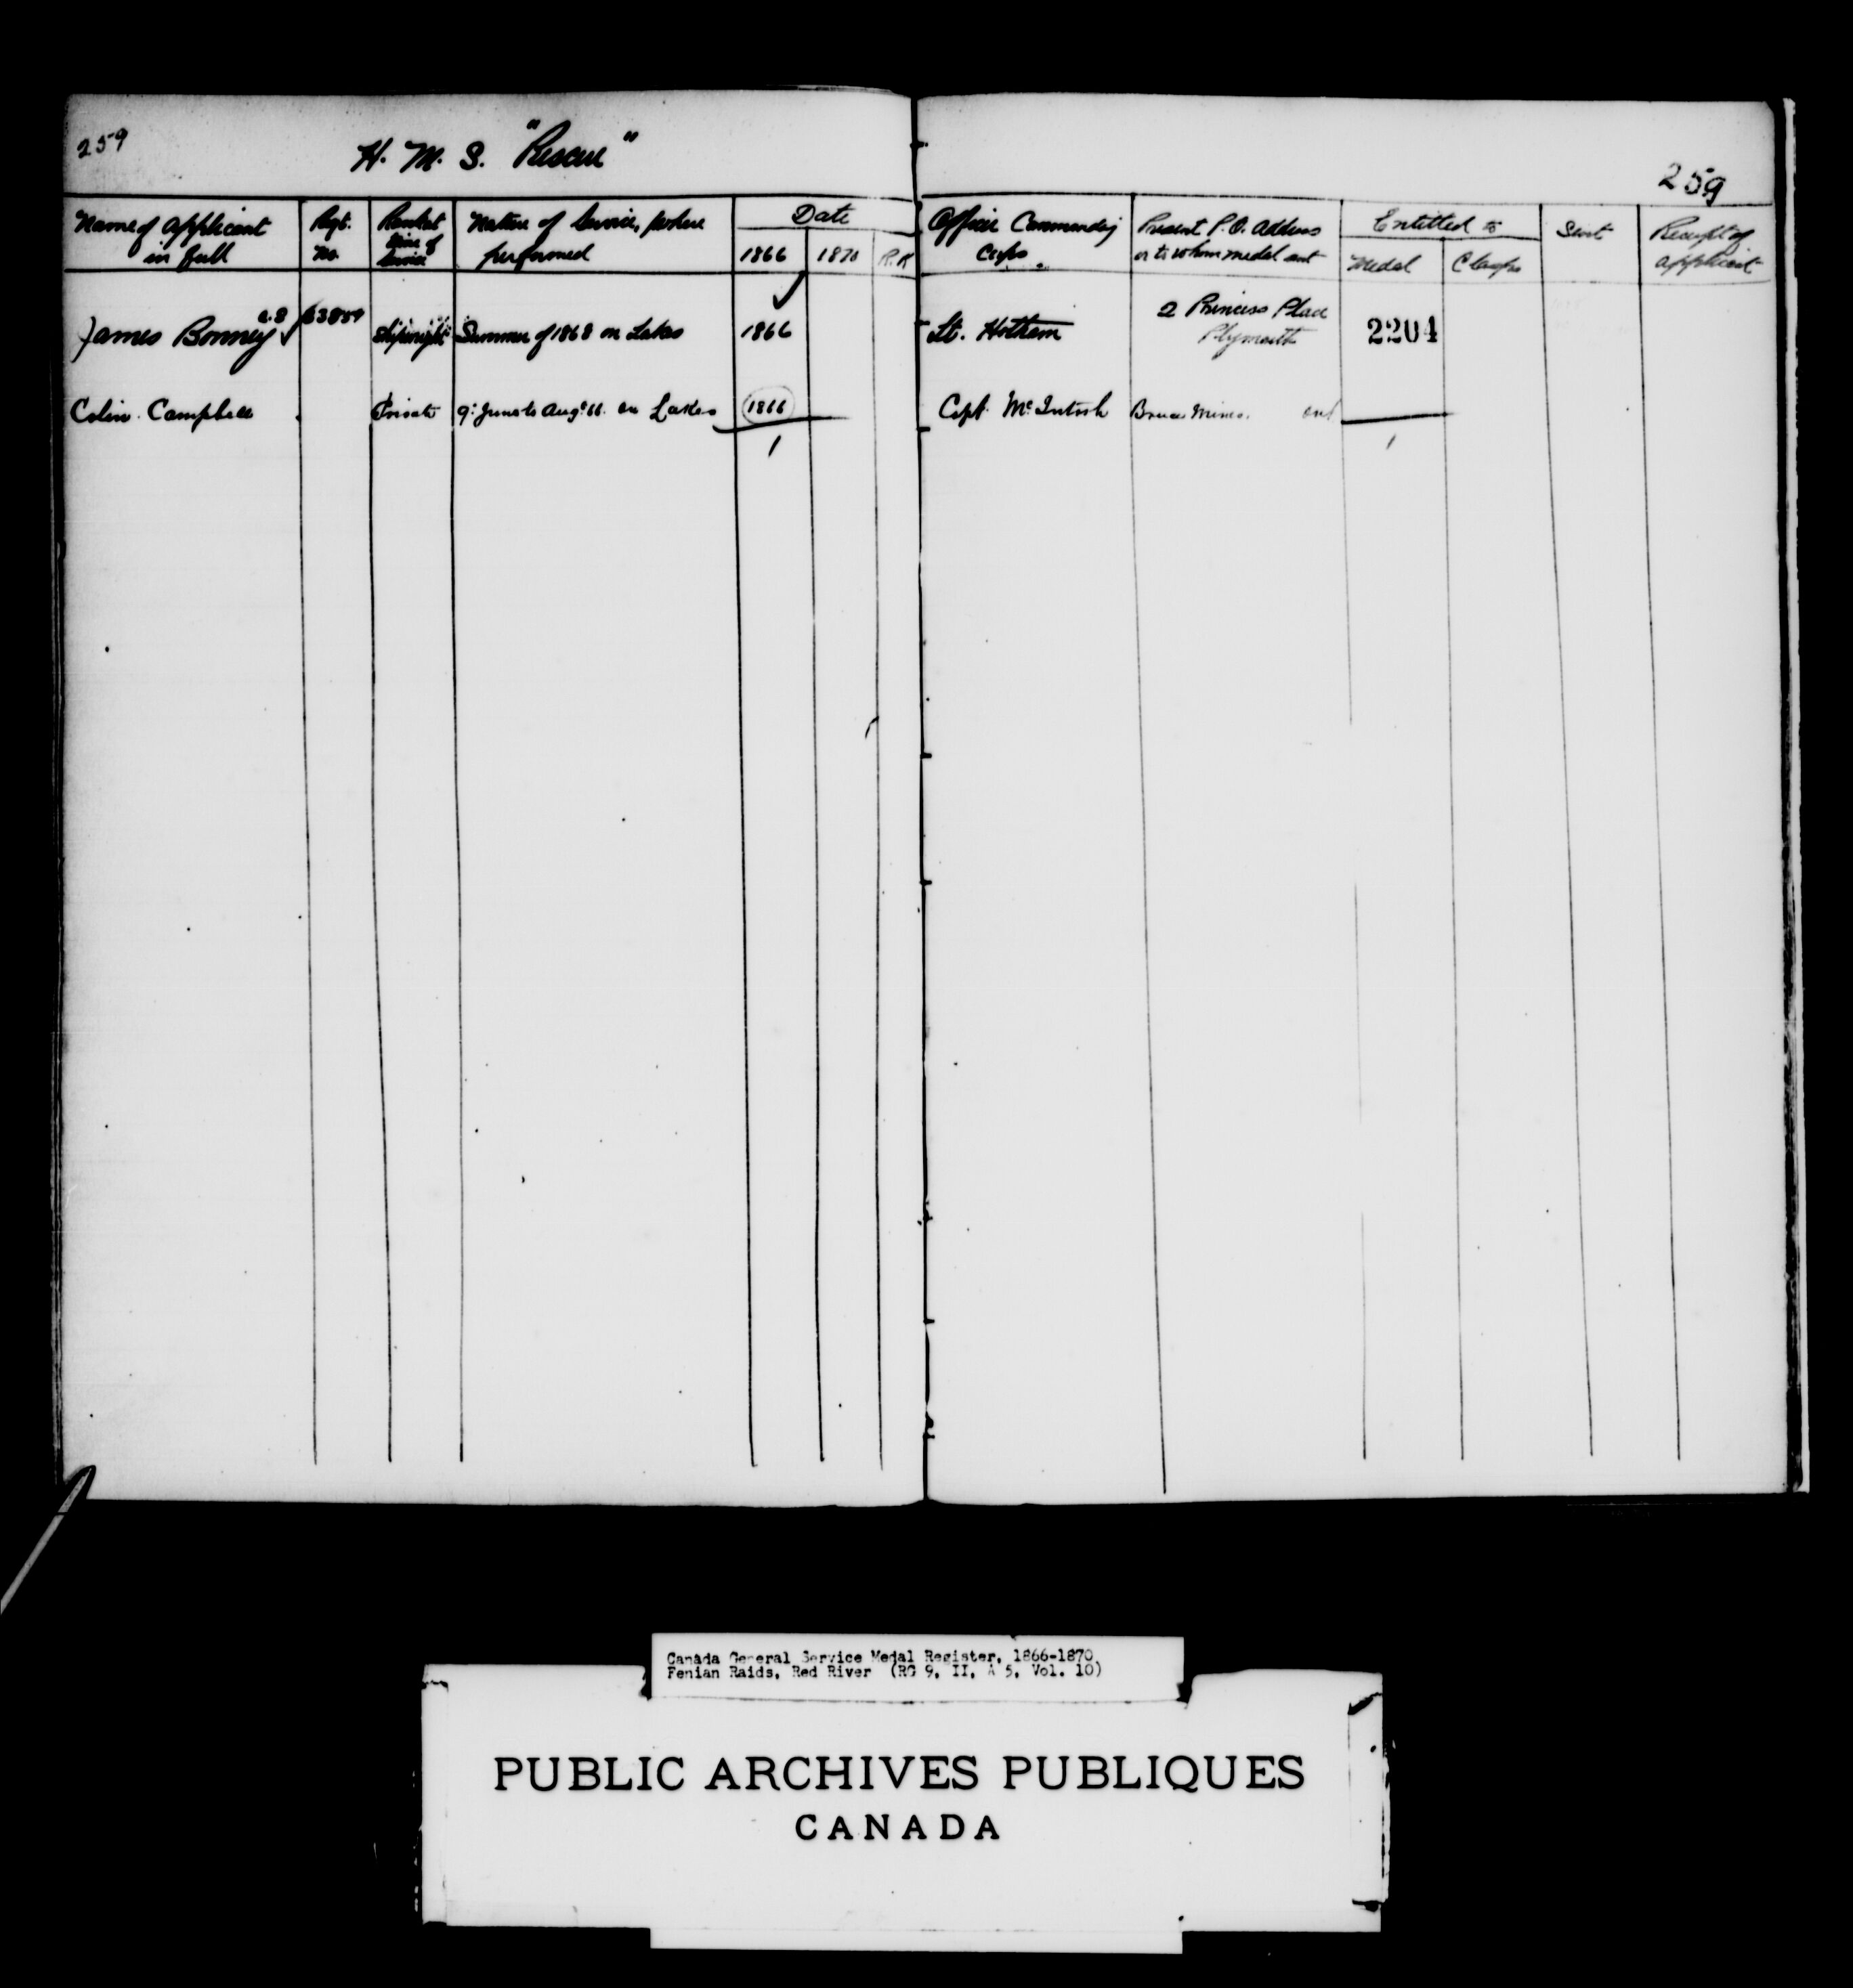 259
H. M. S. "Rescue"
259
Name of applicant in full
Regt. No.
Rank at time of service
Nature of Service, where performed
Date
1866
1870
R.R
Officer Commanding Corps.
Present P.O. Address or to whom medal sent
Entitled to
Medal
Clasps
Sent
Receipt of applicant
James Bonney
Shipwright
Summer of 1868 on Lakes
1866
Lt. Hotham
2 Princess Place
Plymouth
2204
Colin Campbell
Private
9th June to Augt 66. on Lakes
1866
Capt. McIntosh
Bruce Mines. Ont
1
1
Canada General Service Medal Register, 1866-1870
Fenian Raids, Red River (RG 9, II, A 5, Vol. 10)
PUBLIC ARCHIVES PUBLIQUES
CANADA